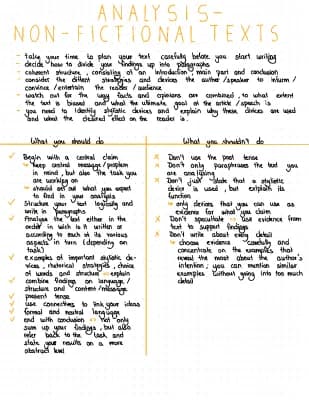 ANALYSIS-
NON-FICTIONAL TEXTS
- take your time to plan your text carefully before you start writing
- decide how to divide your findings up into paragraphs
- coherent structure, consisting of an introduction, main part and conclusion
- consider the different strategies and devices the author / speaker to inform /
convince / entertain the reader / audience
- watch out for the way facts and opinions are combined, to what extent
the text is biased and what the ultimate goal of the article / speech is
- you need to identify stylistic devices and explain why these devices are used
and what the desired effect on the reader is.
What you should do
Begin with a central claim
↳ keep central message / problem
in mind, but also the task you
are working on
↳ should set out what you expect
to find in your analysis
Structure your text logically and
write in paragraphs
Analyse the text either in the
order in which is it written or
according to each of its various
aspects in turn (depending on
task)
examples of important stylistic de-
vices, rhetorical strategies, choice
of words and structure → explain
combine findings on language /
structure and content / message
present tense
use connectives to link your ideas
formal and neutral language
end with conclusion → not only
sum up your findings, but also
refer back to the task and
state your results on a more
abstract level
What you shouldn't do
x Don't use the past tense
x Don't only paraphrases the text you
are analysing
x Don't just state that a stylistic
device is used, but explain its
function
↳ only devices that you can use as
evidence for what you claim
x Don't speculate → use evidence from
text to support findings
x Don't write about every detail
↳ choose evidence carefully and
concentrate on the examples, that
reveal the most about the author's
intention; you can mention similar
examples without going into too much
detail